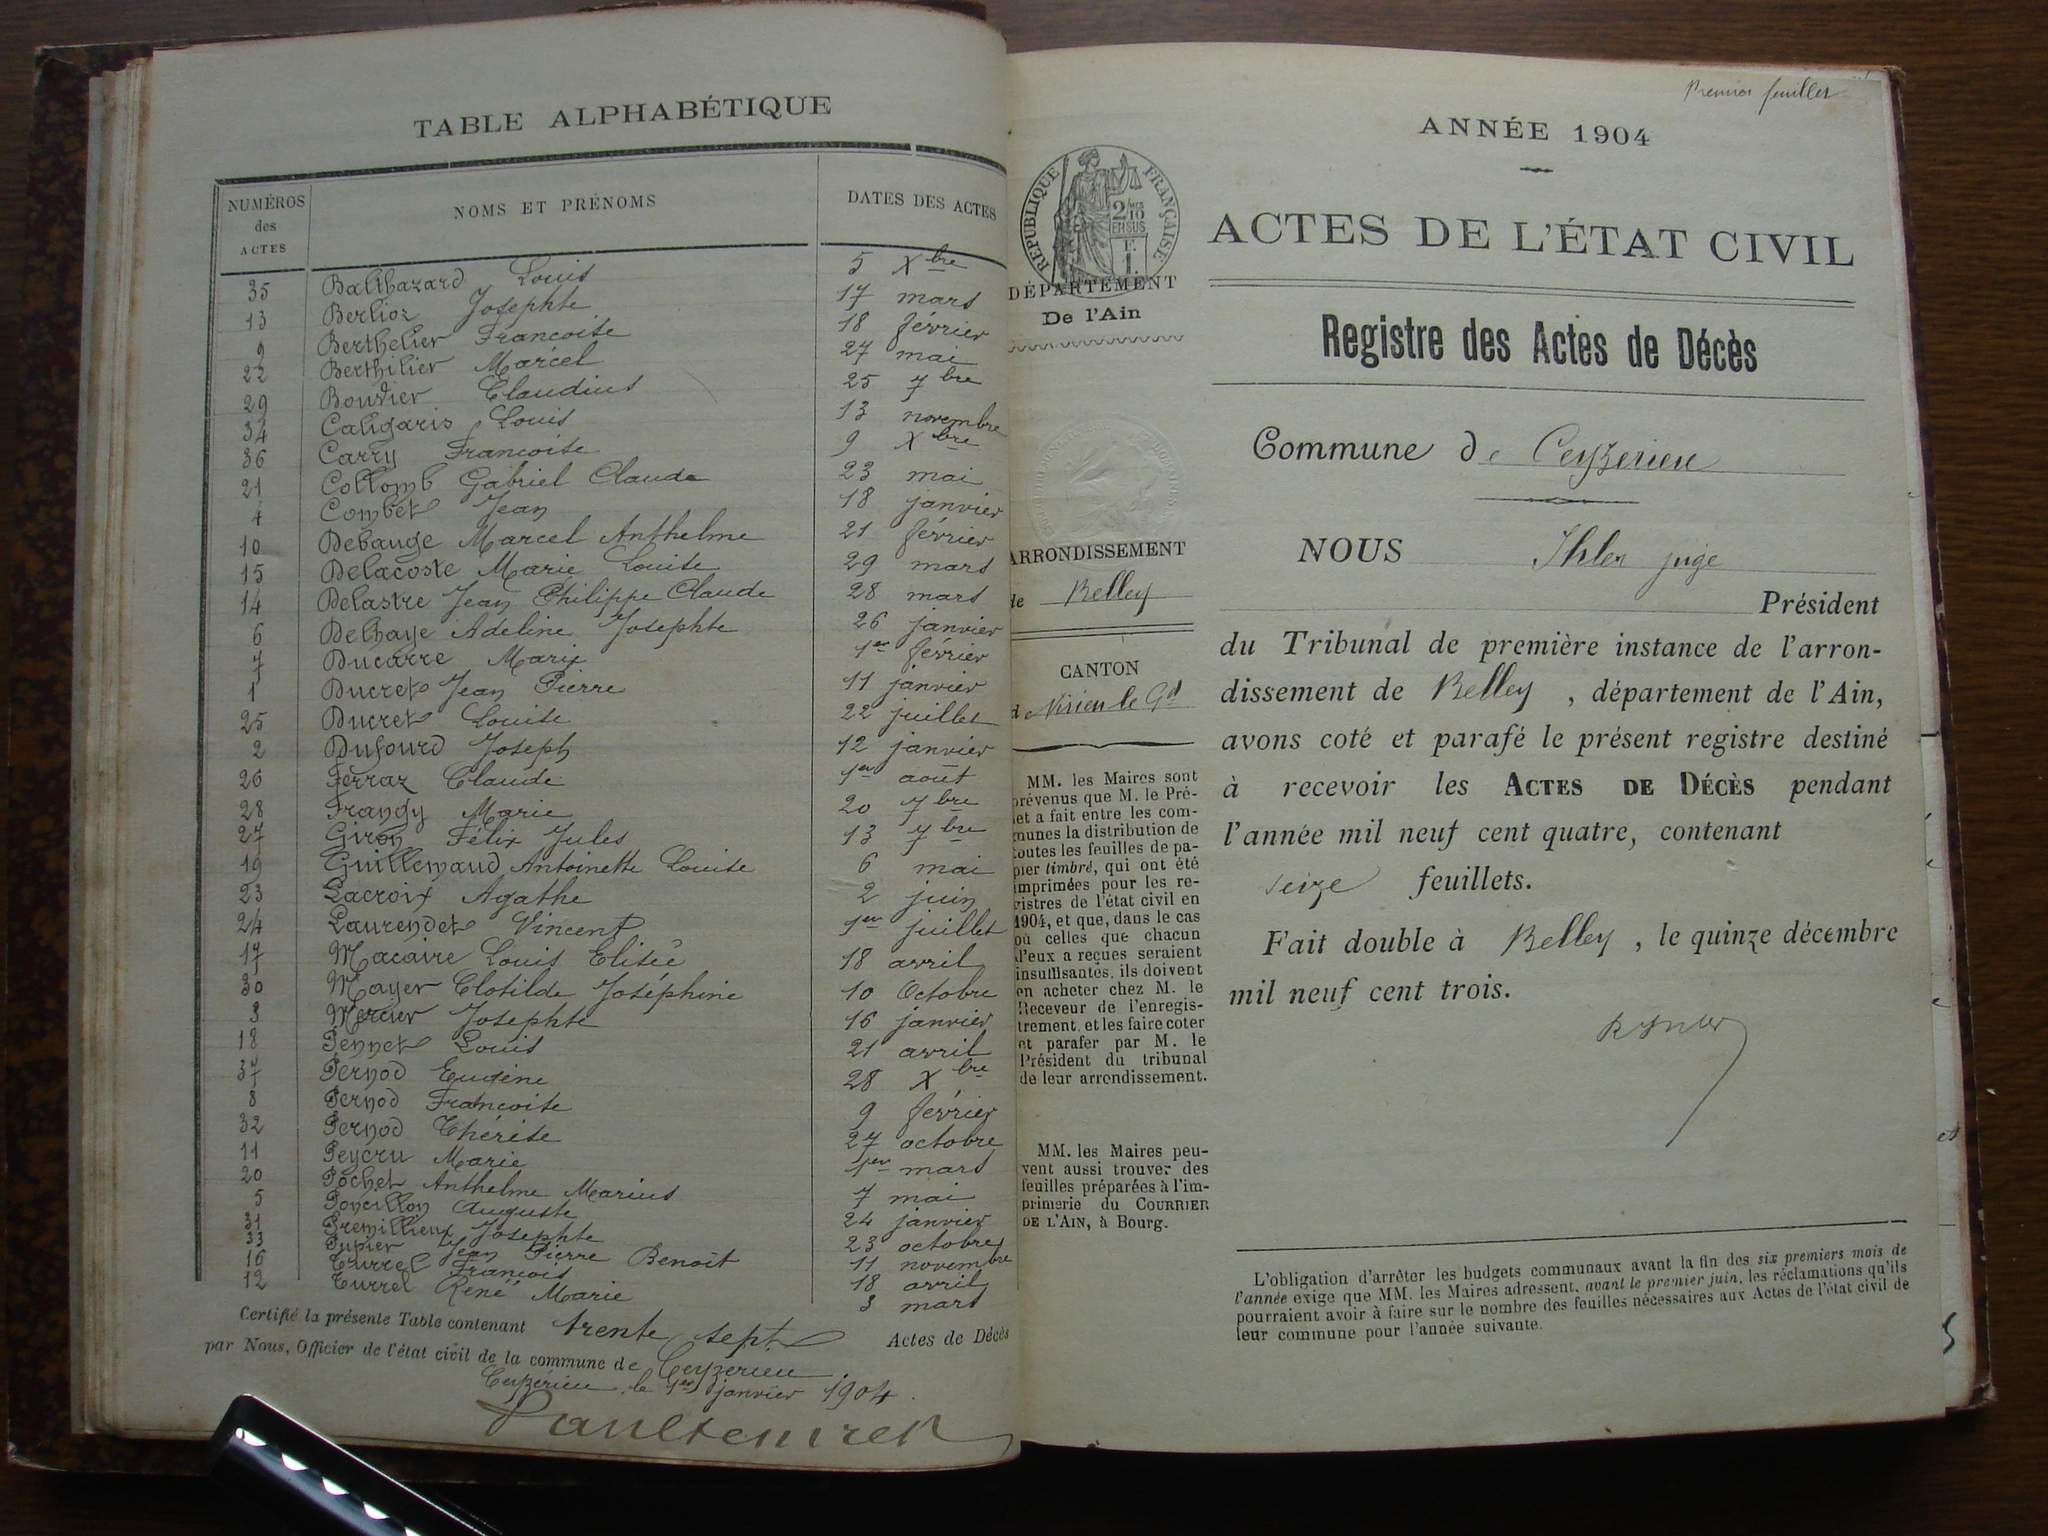 TABLE ALPHABÉTIQUE
NUMÉROS des ACTES NOMS ET PRÉNOMS DATES DES ACTES
35 Balthazard Louis 5 Xbre
13 Berlioz Josephte 17 mars
9 Berthelier Francoise 18 février
22 Berthilier Marcel 27 mai
29 Bouvier Claudius 25 7bre
34 Caligaris Louis 13 novembre
36 Carry Francoise 9 Xbre
21 Collomb Gabriel Claude 23 mai
4 Combet Jean 18 janvier
10 Debauge Marcel Anthelme 21 février
15 Delacoste Marie Louise 29 mars
14 Delastre Jean Philippe Claude 28 mars
6 Delhaye Adeline Josephte 26 janvier
7 Ducarre Marie 1er février
1 Ducret Jean Pierre 11 janvier
25 Ducret Louise 22 juillet
2 Dufourd Joseph 12 janvier
26 Ferraz Claude 1er août
28 Frangy Marie 20 7bre
27 Giron Félix Jules 13 7bre
19 Guillemaud Antoinette Louise 6 mai
23 Lacroix Agathe 2 juin
24 Laurendet Vincent 1er juillet
17 Macaire Louis Elisée 18 avril
30 Mayer Clotilde Joséphine 10 Octobre
3 Mercier Josephte 16 janvier
18 Pennet Louis 21 avril
37 Pernod Eugène 28 Xbre
8 Pernod Francoise 9 février
32 Pernod Thérèse 27 octobre
11 Peycru Marie 1er mars
20 Pochet Anthelme Marius 7 mai
5 Poncillon Auguste 24 janvier
31 Premillieux Josephte 23 octobre
33 Pupier Jean Pierre Benoit 11 novembre
16 Turrel Francois 18 avril
12 Turrel René Marie 3 mars
Certifié la présente Table contenant trente sept Actes de Décès
par Nous, Officier de l'état civil de la commune de Ceyzerieu.
Ceyzérieu, le 1er janvier 1904.
Premier feuillet
ANNÉE 1904
RÉPUBLIQUE FRANÇAISE
2/10 EN SUS
ACTES DE L'ÉTAT CIVIL
DÉPARTEMENT
De l'Ain
Registre des Actes de Décès
Commune de Ceyzerieu
ARRONDISSEMENT
de Belley
CANTON
de Virieu le Gd
MM. les Maires sont
prévenus que M. le Pré-
fet a fait entre les com-
munes la distribution de
toutes les feuilles de pa-
pier timbré, qui ont été
imprimées pour les re-
gistres de l'état civil en
1904, et que, dans le cas
où celles que chacun
d'eux a reçues seraient
insuffisantes, ils doivent
en acheter chez M. le
Receveur de l'enregis-
trement, et les faire coter
et parafer par M. le
Président du tribunal
de leur arrondissement.
MM. les Maires peu-
vent aussi trouver des
feuilles préparées à l'im-
primerie du COURRIER
DE L'AIN, à Bourg.
NOUS Ihler juge
Président
du Tribunal de première instance de l'arron-
dissement de Belley, département de l'Ain,
avons coté et parafé le présent registre destiné
à recevoir les ACTES DE DÉCÈS pendant
l'année mil neuf cent quatre, contenant
seize feuillets.
Fait double à Belley, le quinze décembre
mil neuf cent trois.
L'obligation d'arrêter les budgets communaux avant la fin des six premiers mois de
l'année exige que MM. les Maires adressent, avant le premier juin, les réclamations qu'ils
pourraient avoir à faire sur le nombre des feuilles nécessaires aux Actes de l'état civil de
leur commune pour l'année suivante.